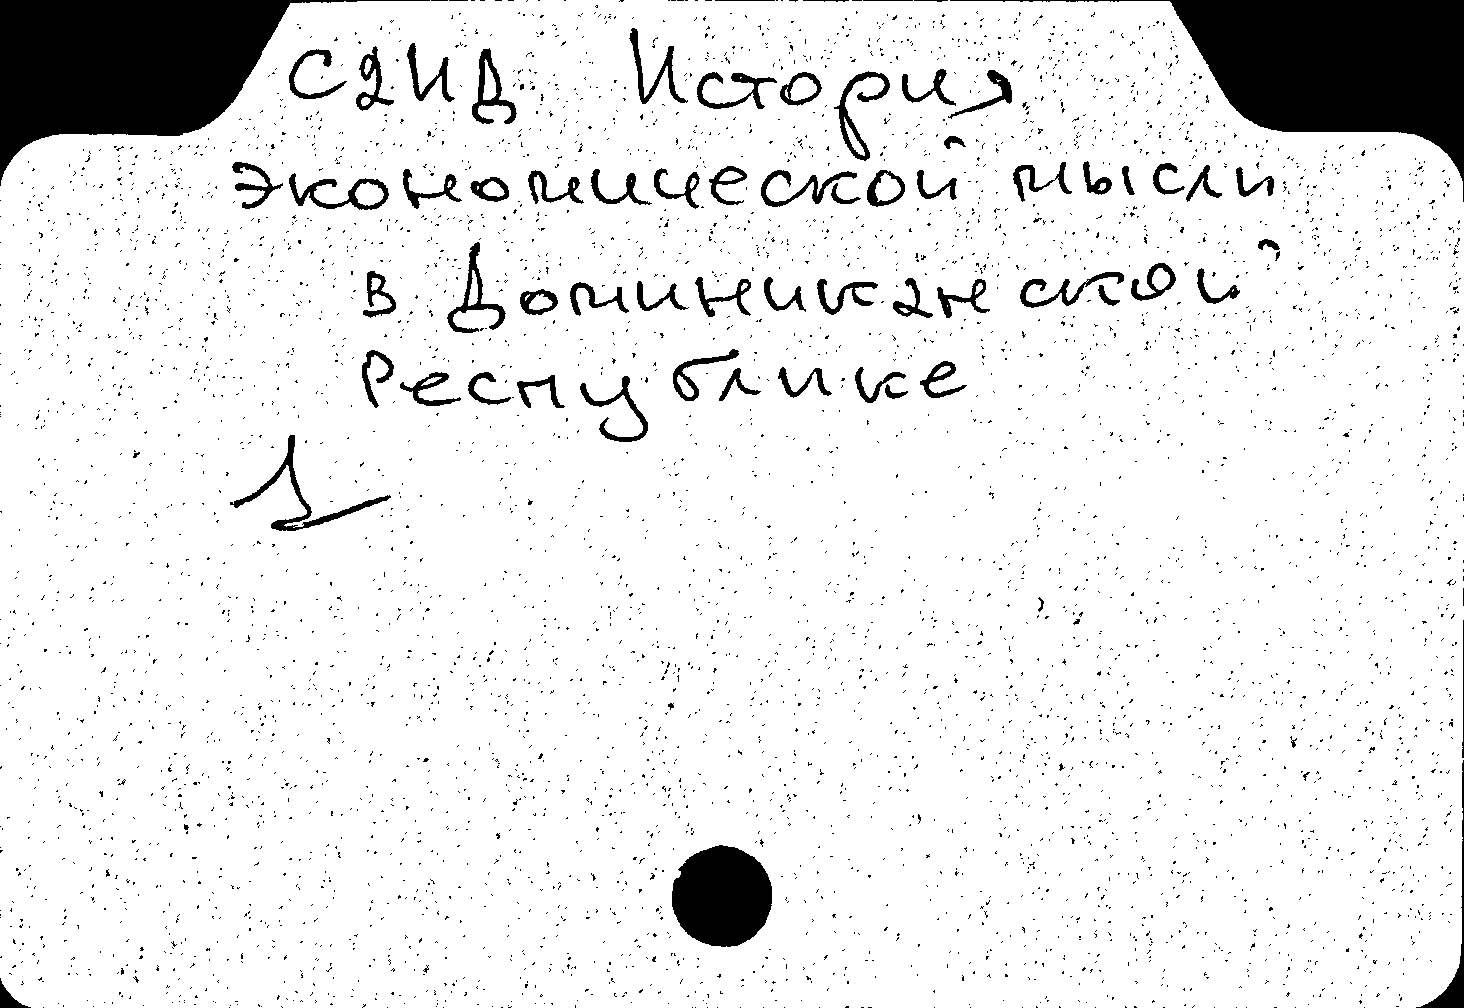 С2ИД История
экономической мысли
в Доминиканской
Республике
1